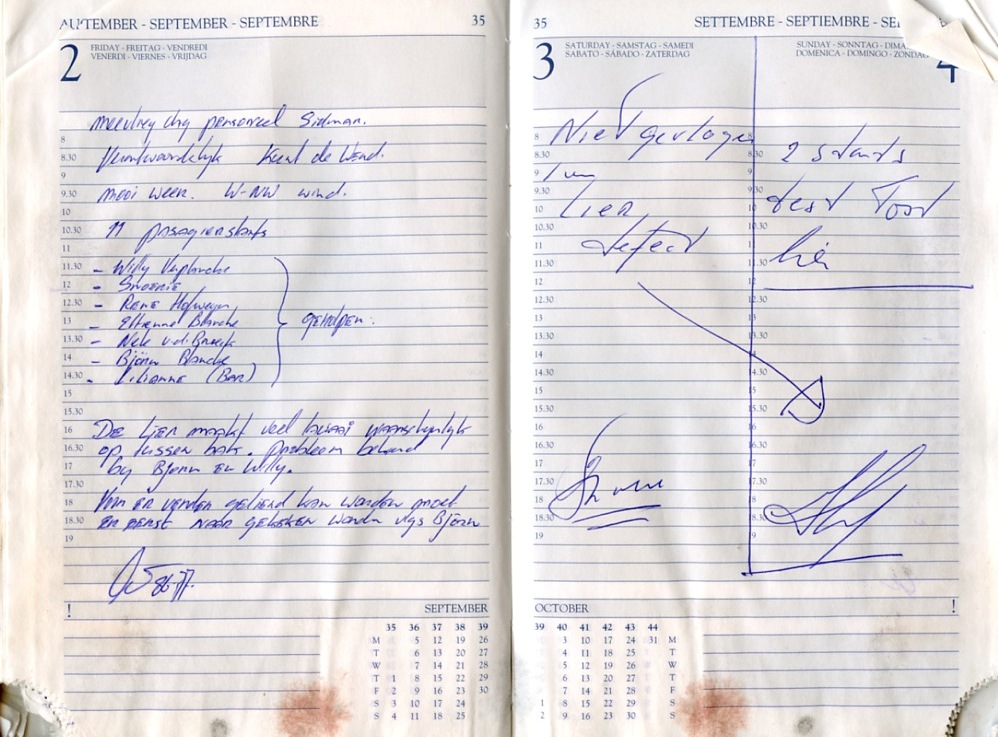 AUTEMBER - SEPTEMBER - SEPTEMBRE 35
2 FRIDAY - FREITAG - VENDREDI
VENERDI - VIERNES - VRIJDAG
personeel Sidmar.
8
8.30 Verantwoordelijk de Wind.
9
9.30 mooi weer. W-NW wind.
10
10.30 11 pasagierstarts
11
11.30 - Willy Verplancke
12 - Snoerie
12.30 - René Hofwegen
13 - Etienne Blanche geholpen:
13.30 - Nele v.d. Broeck
14 - Björn Blancke
14.30 - Lilianne (Bar)
15
15.30
16 De lier maakt veel lawaai waarschynlyk
16.30 op tussen bak. Probleem bekend
17 by Bjorn en Willy.
17.30
18 Voor er verder gelierd kan worden moet
18.30 er eerst naar gekeken worden vlgs Bjorn
19
! SEPTEMBER
35 36 37 38 39
M 5 12 19 26
T 6 13 20 27
W 7 14 21 28
T 1 8 15 22 29
F 2 9 16 23 30
S 3 10 17 24
S 4 11 18 25
35 SETTEMBRE - SEPTIEMBRE - SE
3 SATURDAY - SAMSTAG - SAMEDI
SABATO - SÁBADO - ZATERDAG
8 Niet gevlogen
8.30
9
9.30
10 Lier
10.30
11 defect
11.30
12
12.30
13
13.30
14
14.30
15
15.30
16
16.30
17
17.30
18
18.30
19
SUNDAY - SONNTAG - DIMA
DOMENICA - DOMINGO - ZONDAG
4
2 starts
test voor
lier
OCTOBER !
39 40 41 42 43 44
M 3 10 17 24 31 M
T 4 11 18 25 T
W 5 12 19 26 W
T 6 13 20 27 T
F 7 14 21 28 F
S 1 8 15 22 29 S
S 2 9 16 23 30 S